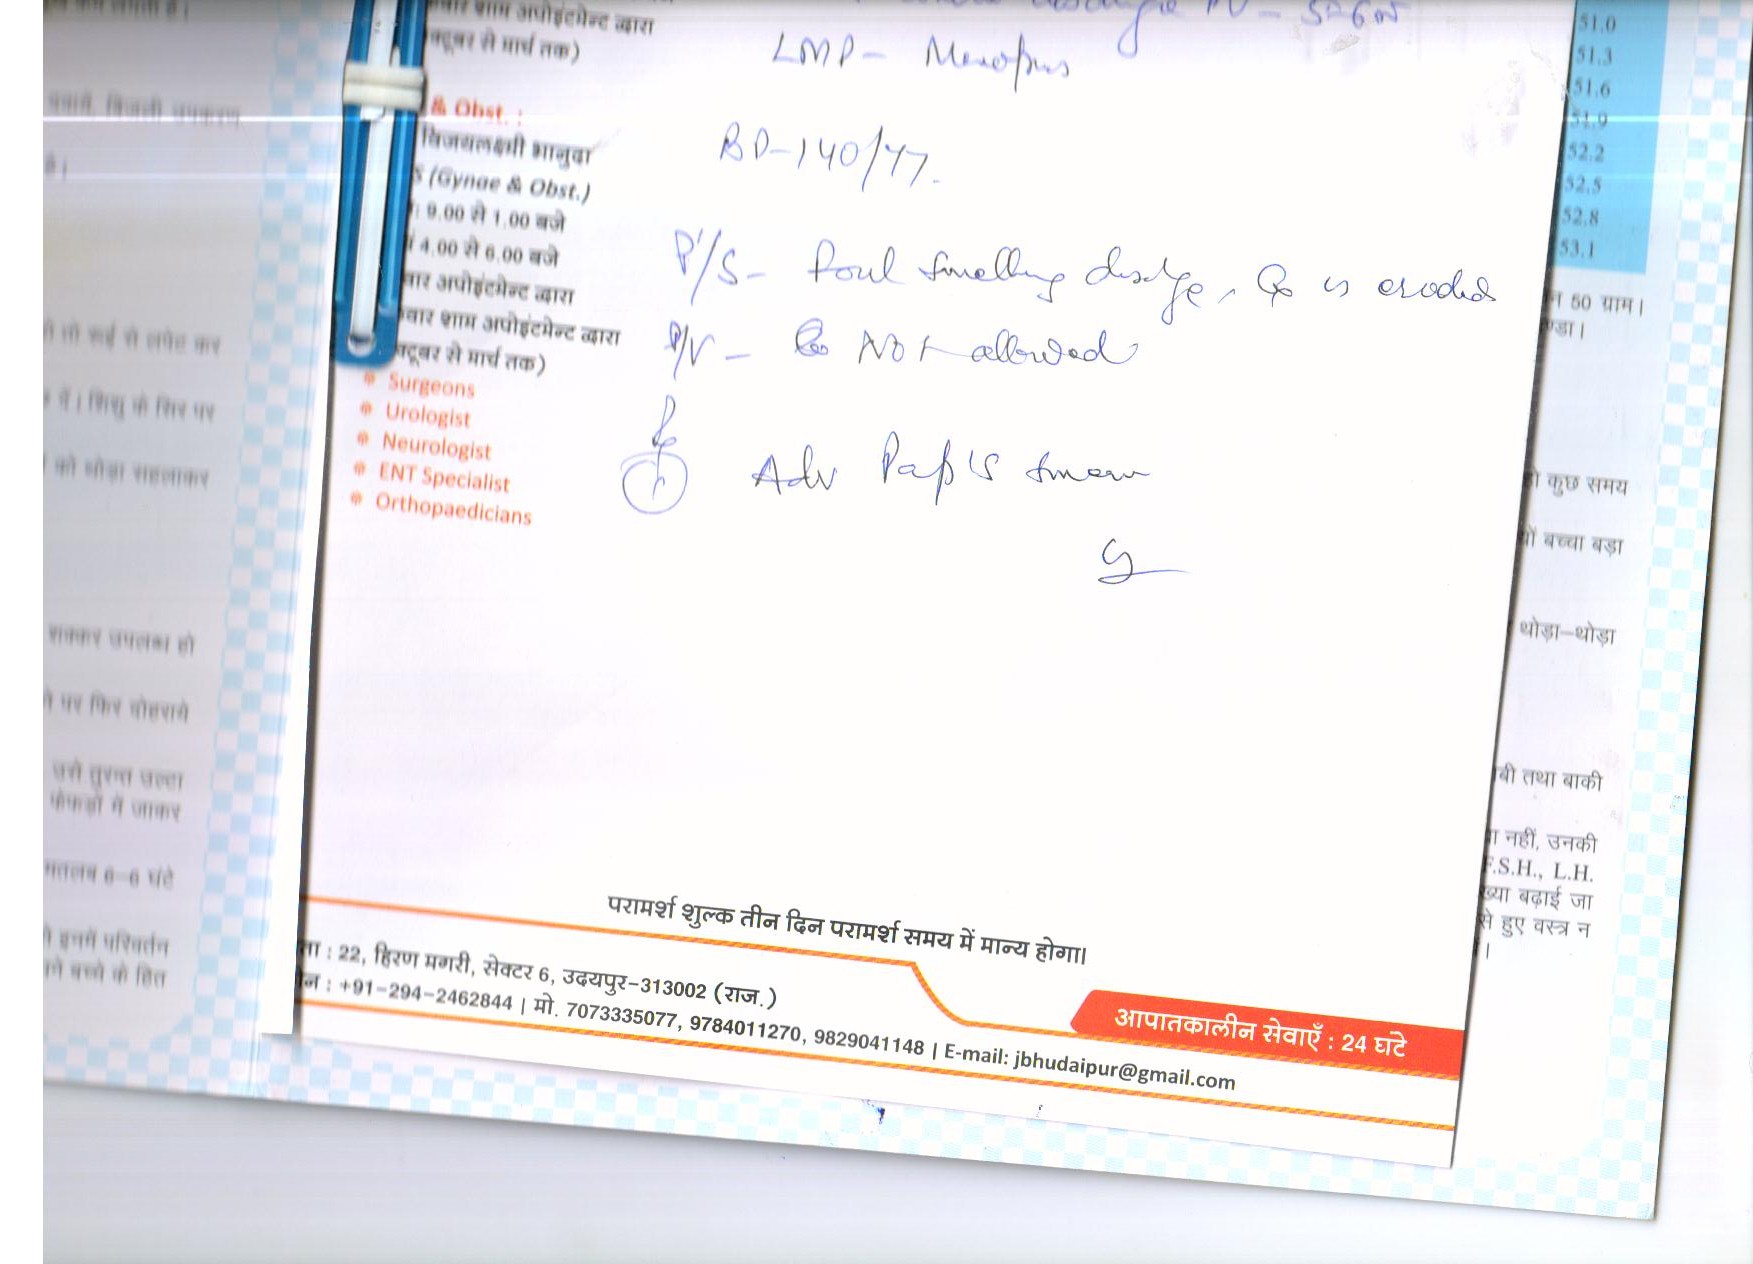 शाम अपोइंटमेन्ट द्वारा
से मार्च तक)
PV - 5-6
LMP - Menopus
& Obst. :
विजयलक्ष्मी भानुदा
S (Gynae & Obst.)
: 9.00 से 1.00 बजे
4.00 से 6.00 बजे
वार अपोइंटमेन्ट द्वारा
वार शाम अपोइंटमेन्ट द्वारा
क्टूबर से मार्च तक)
Surgeons
Urologist
Neurologist
ENT Specialist
Orthopaedicians
BP-140/
P/S - Foul smelling is eroded
P/V - Not allowed
Adv Pap's smear
परामर्श शुल्क तीन दिन परामर्श समय में मान्य होगा।
ता : 22, हिरण मगरी, सेक्टर 6, उदयपुर-313002 (राज.)
न : +91-294-2462844 | मो. 7073335077, 9784011270, 9829041148 | E-mail: jbhudaipur@gmail.com
आपातकालीन सेवाएँ : 24 घंटे
51.0
51.3
51.6
51.9
52.2
52.5
52.8
53.1
50 ग्राम।
ण्डा।
कुछ समय
बच्चा बड़ा
थोड़ा-थोड़ा
तथा बाकी
नहीं, उनकी
F.S.H., L.H.
बढ़ाई जा
से हुए वस्त्र न
बनाये, बिजली उपकरण
है।
तो रूई से लपेट कर
में। शिशु के सिर पर
को थोड़ा सहलाकर
शक्कर उपलब्ध हो
पर फिर दोहराये
उसे तुरन्त उल्टा
फेफड़ों में जाकर
मतलब 6-6 घंटे
इनमें परिवर्तन
बच्चे के हित